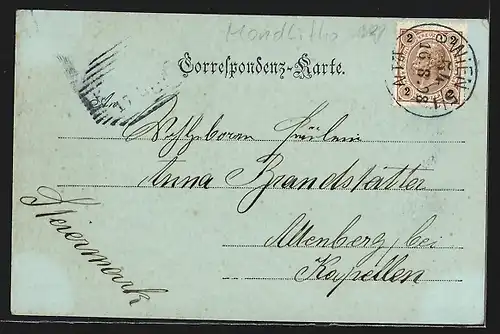 Mondlitho
Correspondenz-Karte.
WIEN
16.8
2 2
2 2
An
Wohlgeboren Fräulein
Anna Brandstätter
Altenberg, bei
Kapellen
Steiermark